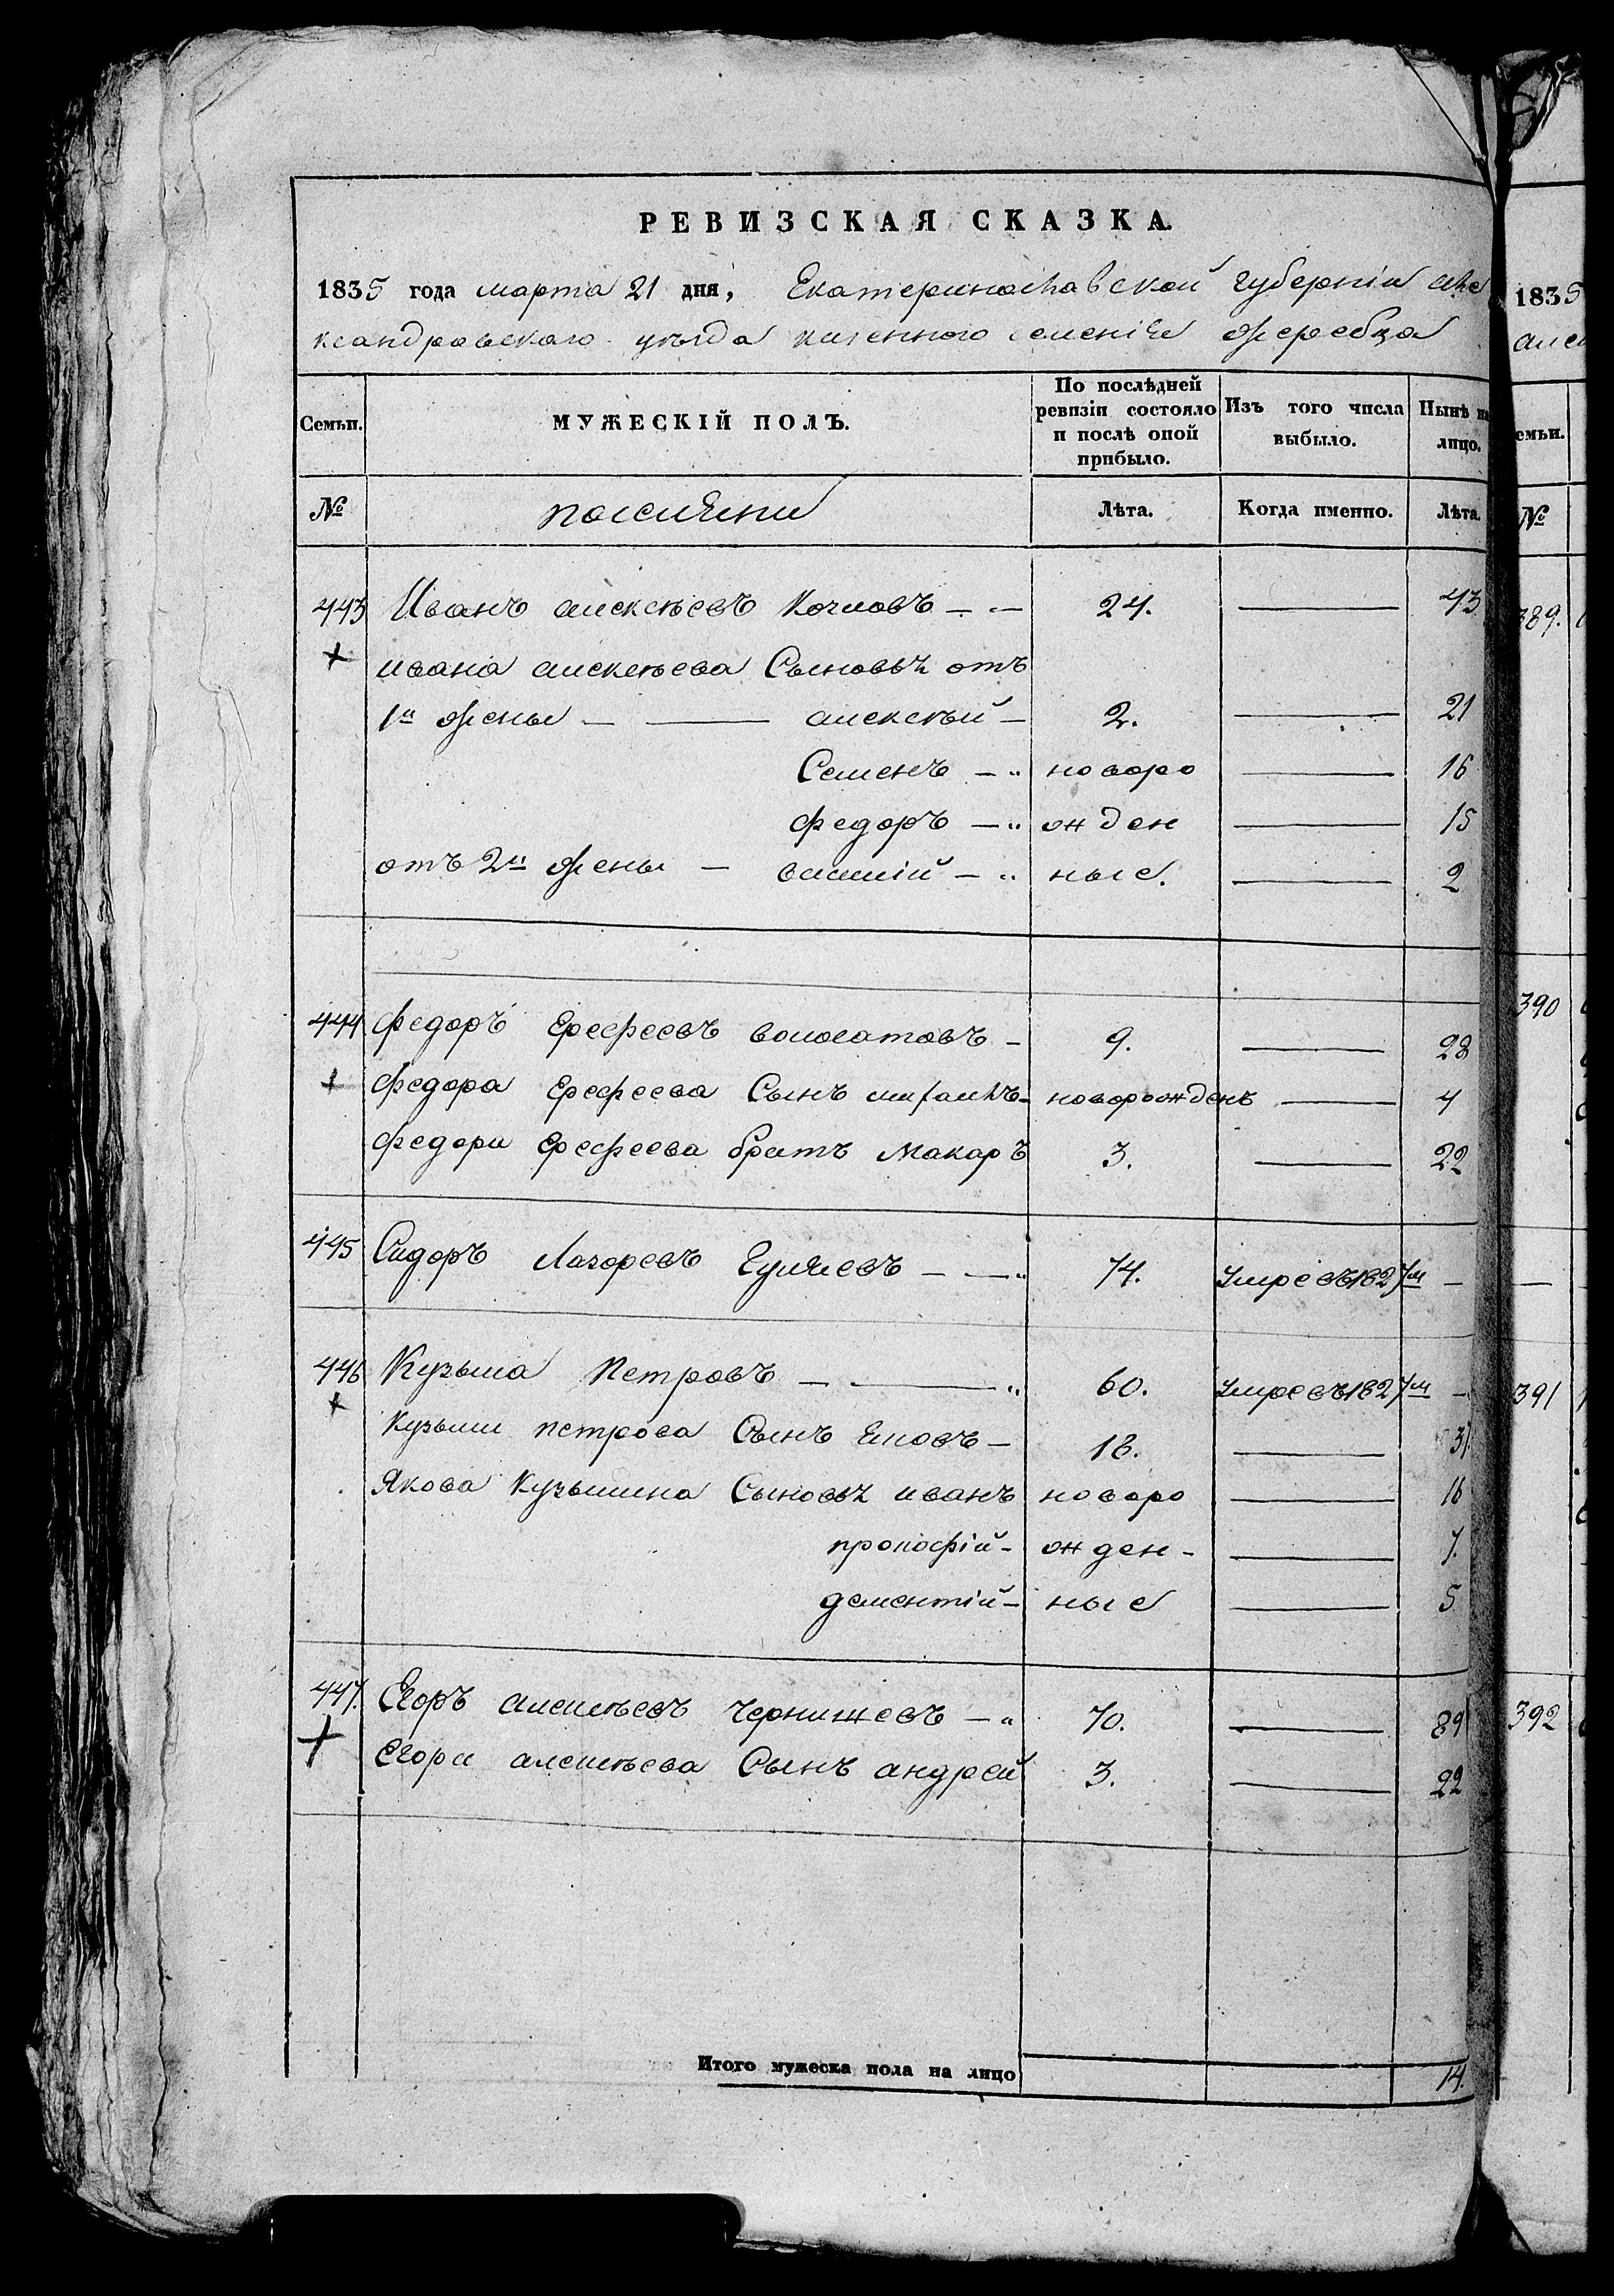 РЕВИЗСКАЯ СКАЗКА.
1835 года марта 21 дня, Екатеринославской губерніи але
ксандровскаго уѣзда казенного селенія жеребца
Семьи.
МУЖЕСКІЙ ПОЛЪ.
По послѣдней ревизіи состояло и послѣ оной прибыло.
Изъ того числа выбыло.
Нынѣ на лицо.
№
поселяни
Лѣта.
Когда именно.
Лѣта.
443 Иванъ алексѣевъ Кочновъ 24. 43
ивана алексѣева Сыновья отъ
1й жены алексѣй 2. 21
Семенъ новоро 16
федоръ жден 15
отъ 2й жены василій ные. 2
444 федоръ Ерефеевъ волосатовъ 9. 28
федора Ерефеева Сынъ новорожденъ 4
федора Ерефеева братъ Макаръ 3. 22
445 Сидоръ Лазоревъ 74. умре въ 1827м
446 Кузьма Петровъ 60. умре въ 1827м
Кузьми петрова Сынъ Яковъ 18. 37
Якова Кузьмина Сыновья иванъ новоро 16
прокофій жден- 7.
дементій ные 5
447. Егоръ алексѣевъ чернышевъ 70. 89
Егора алексѣева Сынъ андрей 3. 22
Итого мужеска пола на лицо 14.
1835
але
емьи.
№
389.
390
391
392